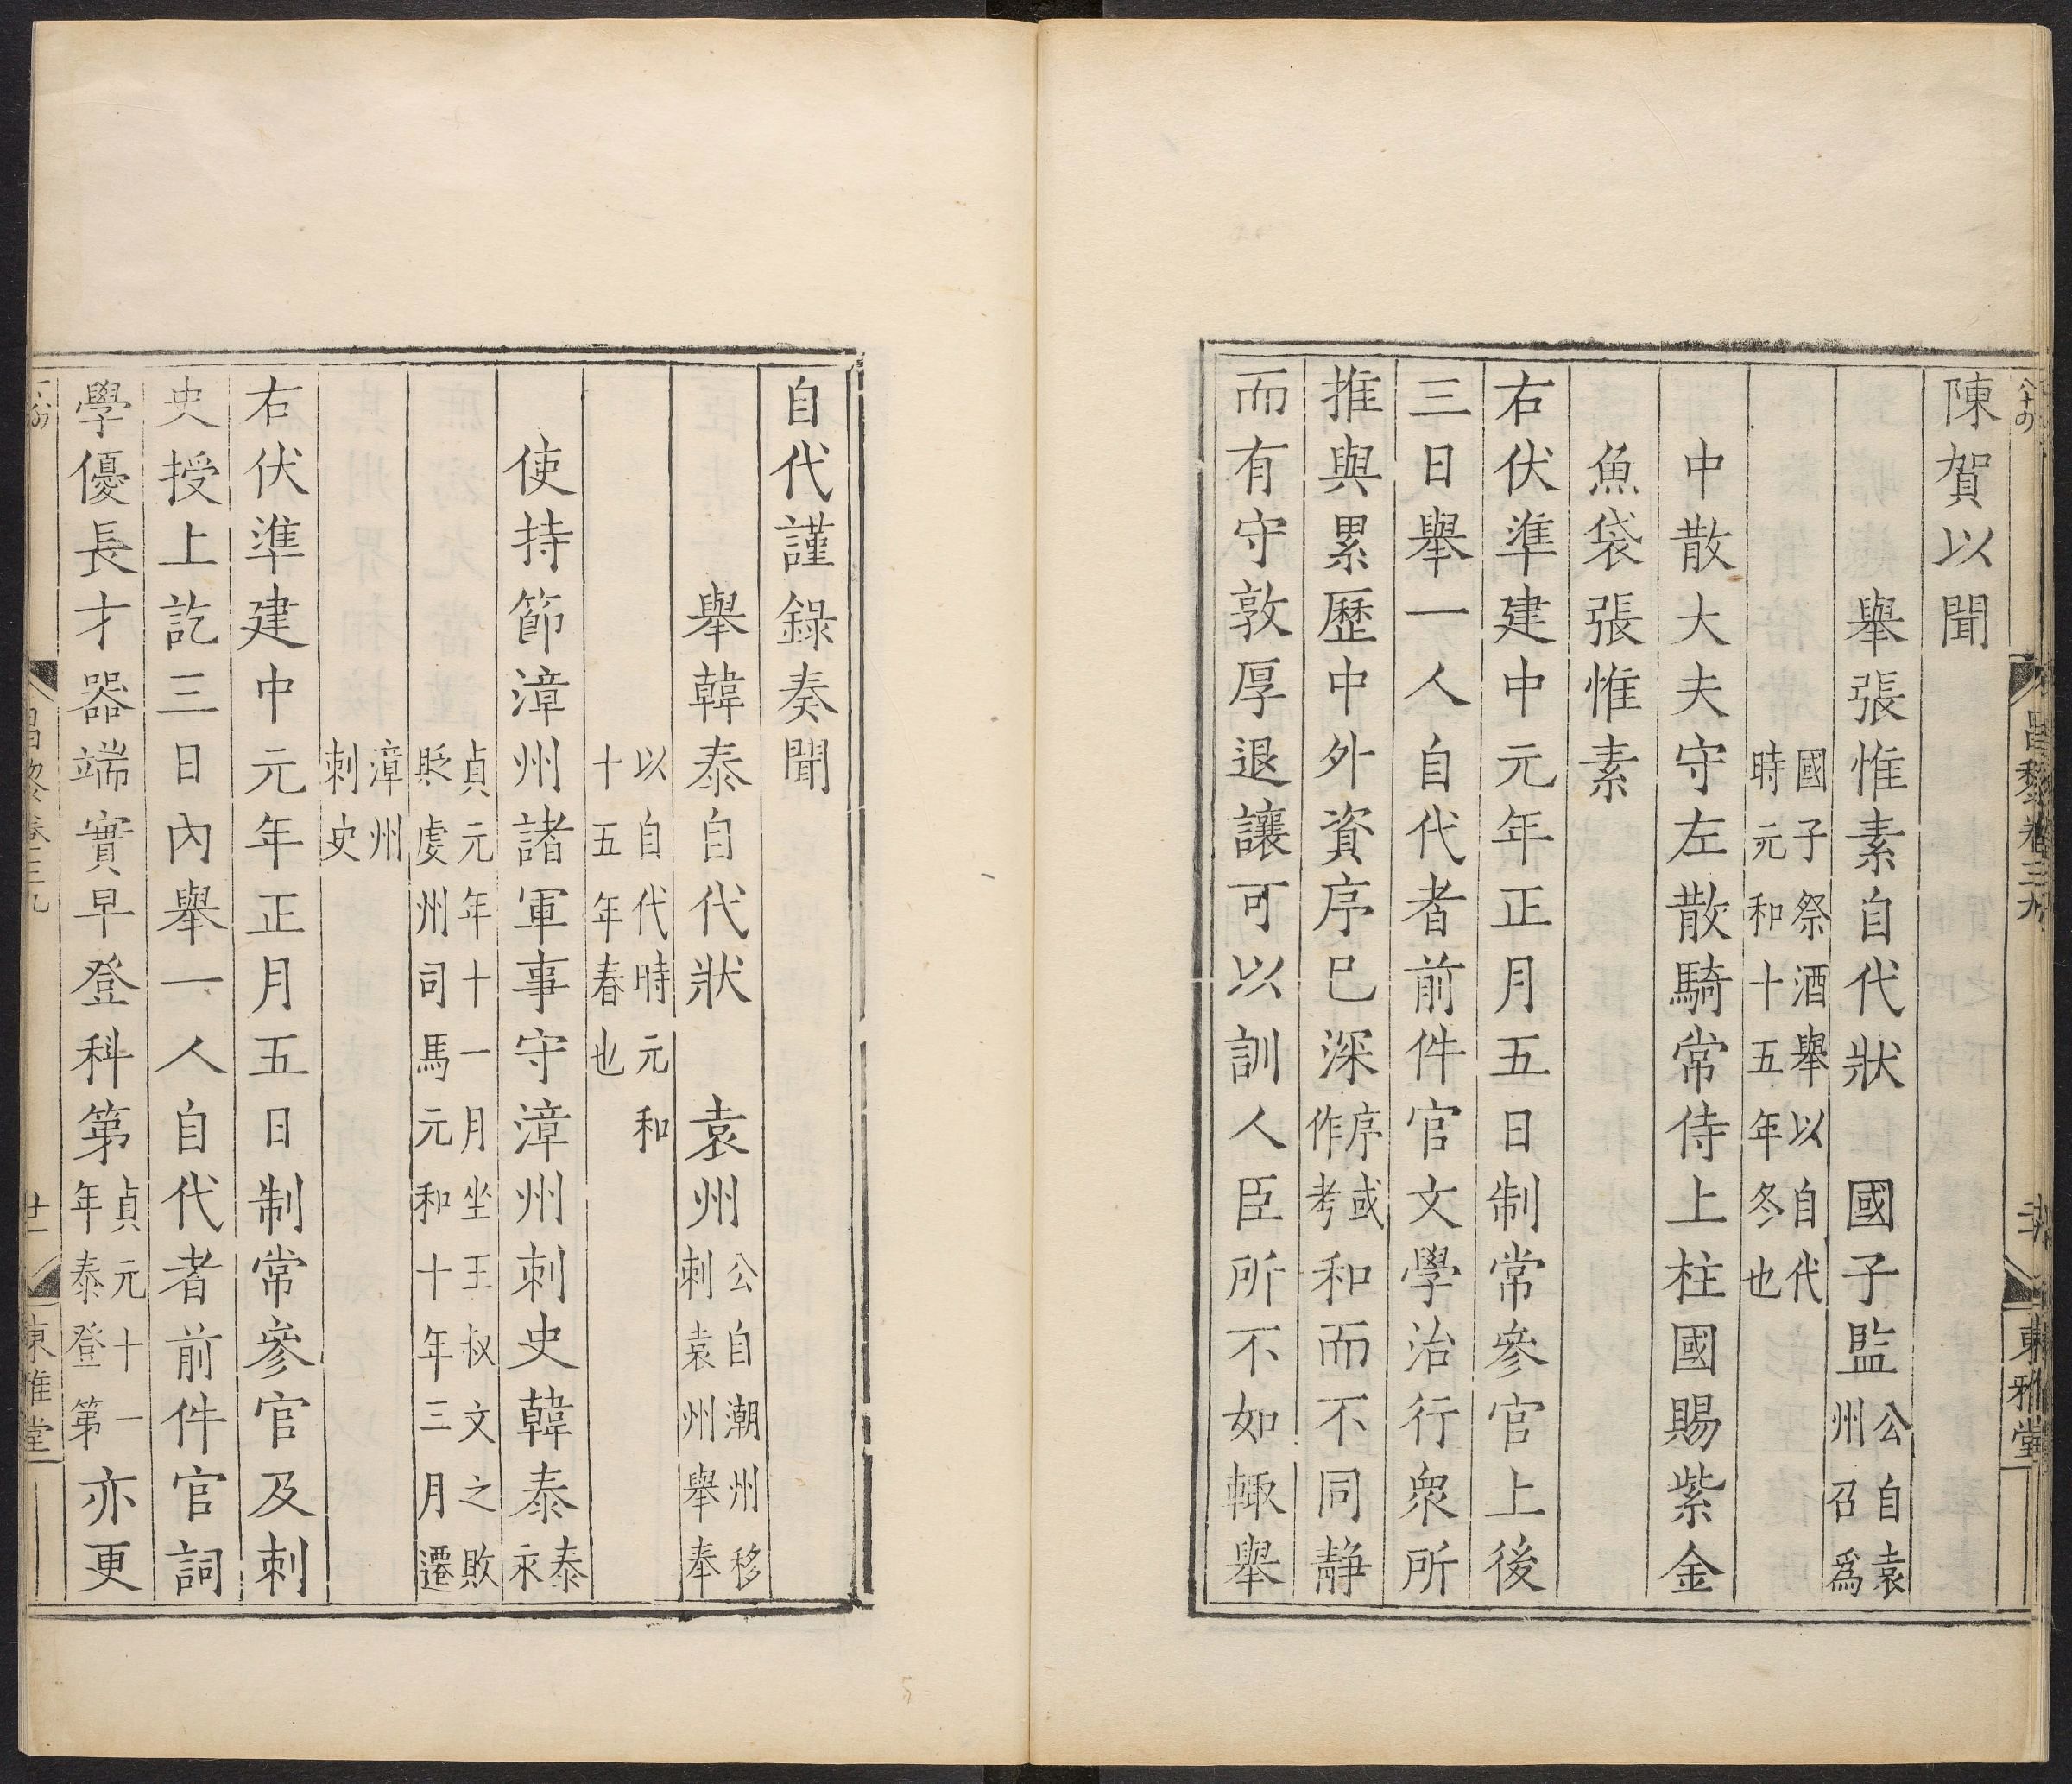 陳賀以聞
舉張惟素自代狀 國子監公自袁州召爲
國子祭酒舉以自代
時元和十五年冬也
中散大夫守左散騎常侍上柱國賜紫金
魚袋張惟素
右伏準建中元年正月五日制常參官上後
三日舉一人自代者前件官文學治行衆所
推與累歷中外資序已深序或作考和而不同靜
而有守敦厚退讓可以訓人臣所不如輒舉
自代謹錄奏聞
舉韓泰自代狀 袁州公自潮州移刺袁州舉奉
以自代時元和
十五年春也
使持節漳州諸軍事守漳州刺史韓泰泰永
貞元年十一月坐王叔文之敗
貶虔州司馬元和十年三月遷
漳州
刺史
右伏準建中元年正月五日制常參官及刺
史授上訖三日內舉一人自代者前件官詞
學優長才器端實早登科第貞元十一年泰登第亦更
昌黎卷三九
廿一
東雅堂